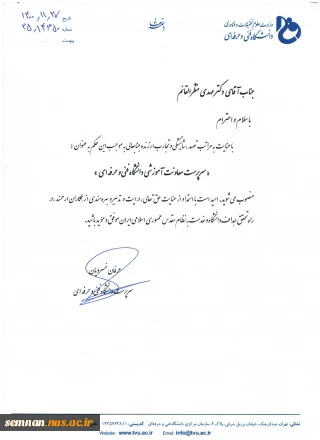 وزارت علوم تحقیقات و فناوری
دانشگاه فنی و حرفه‌ای
باسمه تعالی
تاریخ ۱۴۰۰,۱۱,۲۷
شماره ۲۵,۱۴۳۵۰
پیوست
جناب آقای دکتر مهدی منظرالقائم
با سلام و احترام
با عنایت به مراتب تعهد، شایستگی و تجارب ارزنده جنابعالی به موجب این حکم به عنوان:
«سرپرست معاونت آموزشی دانشگاه فنی و حرفه ای»
منصوب می شوید. امید است با استمداد از عنایات حق تعالی، درایت و تدبیر و بهره مندی از همکاران ارجمند، در
راه تحقق اهداف دانشگاه و خدمت به نظام مقدس جمهوری اسلامی ایران موفق و موید باشید.
عرفان خسرویان
سرپرست دانشگاه فنی و حرفه ای
نشانی: تهران، میدان ونک، خیابان برزیل شرقی، پلاک ۴ سازمان مرکزی دانشگاه فنی و حرفه‌ای کدپستی: ۱۴۳۵۷۶۳۸۱۱
Website: www.tvu.ac.ir Email: info@tvu.ac.ir
semnan.nus.ac.ir